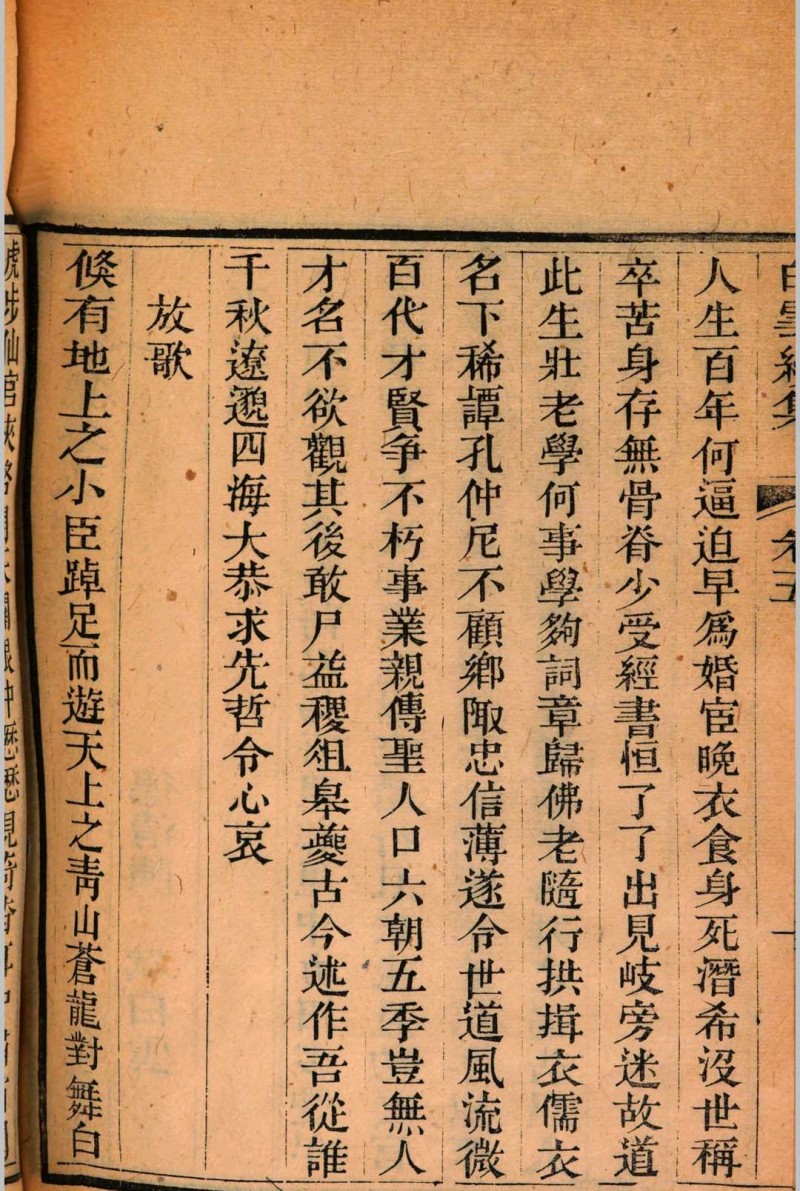 卷五
人生百年何逼迫早爲婚宦晚衣食身死潛希沒世稱
卒苦身存無骨脊少受經書恒了了出見岐旁迷故道
此生壯老學何事學夠詞章歸佛老隨行拱揖衣儒衣
名下稀譚孔仲尼不顧鄉陬忠信薄遂令世道風流微
百代才賢爭不朽事業親傳聖人口六朝五季豈無人
才名不欲觀其後敢尸益稷俎皋夔古今述作吾從誰
千秋遼邈四海大恭求先哲令心哀
放歌
倏有地上之小臣踔足而遊天上之靑山蒼龍對舞白